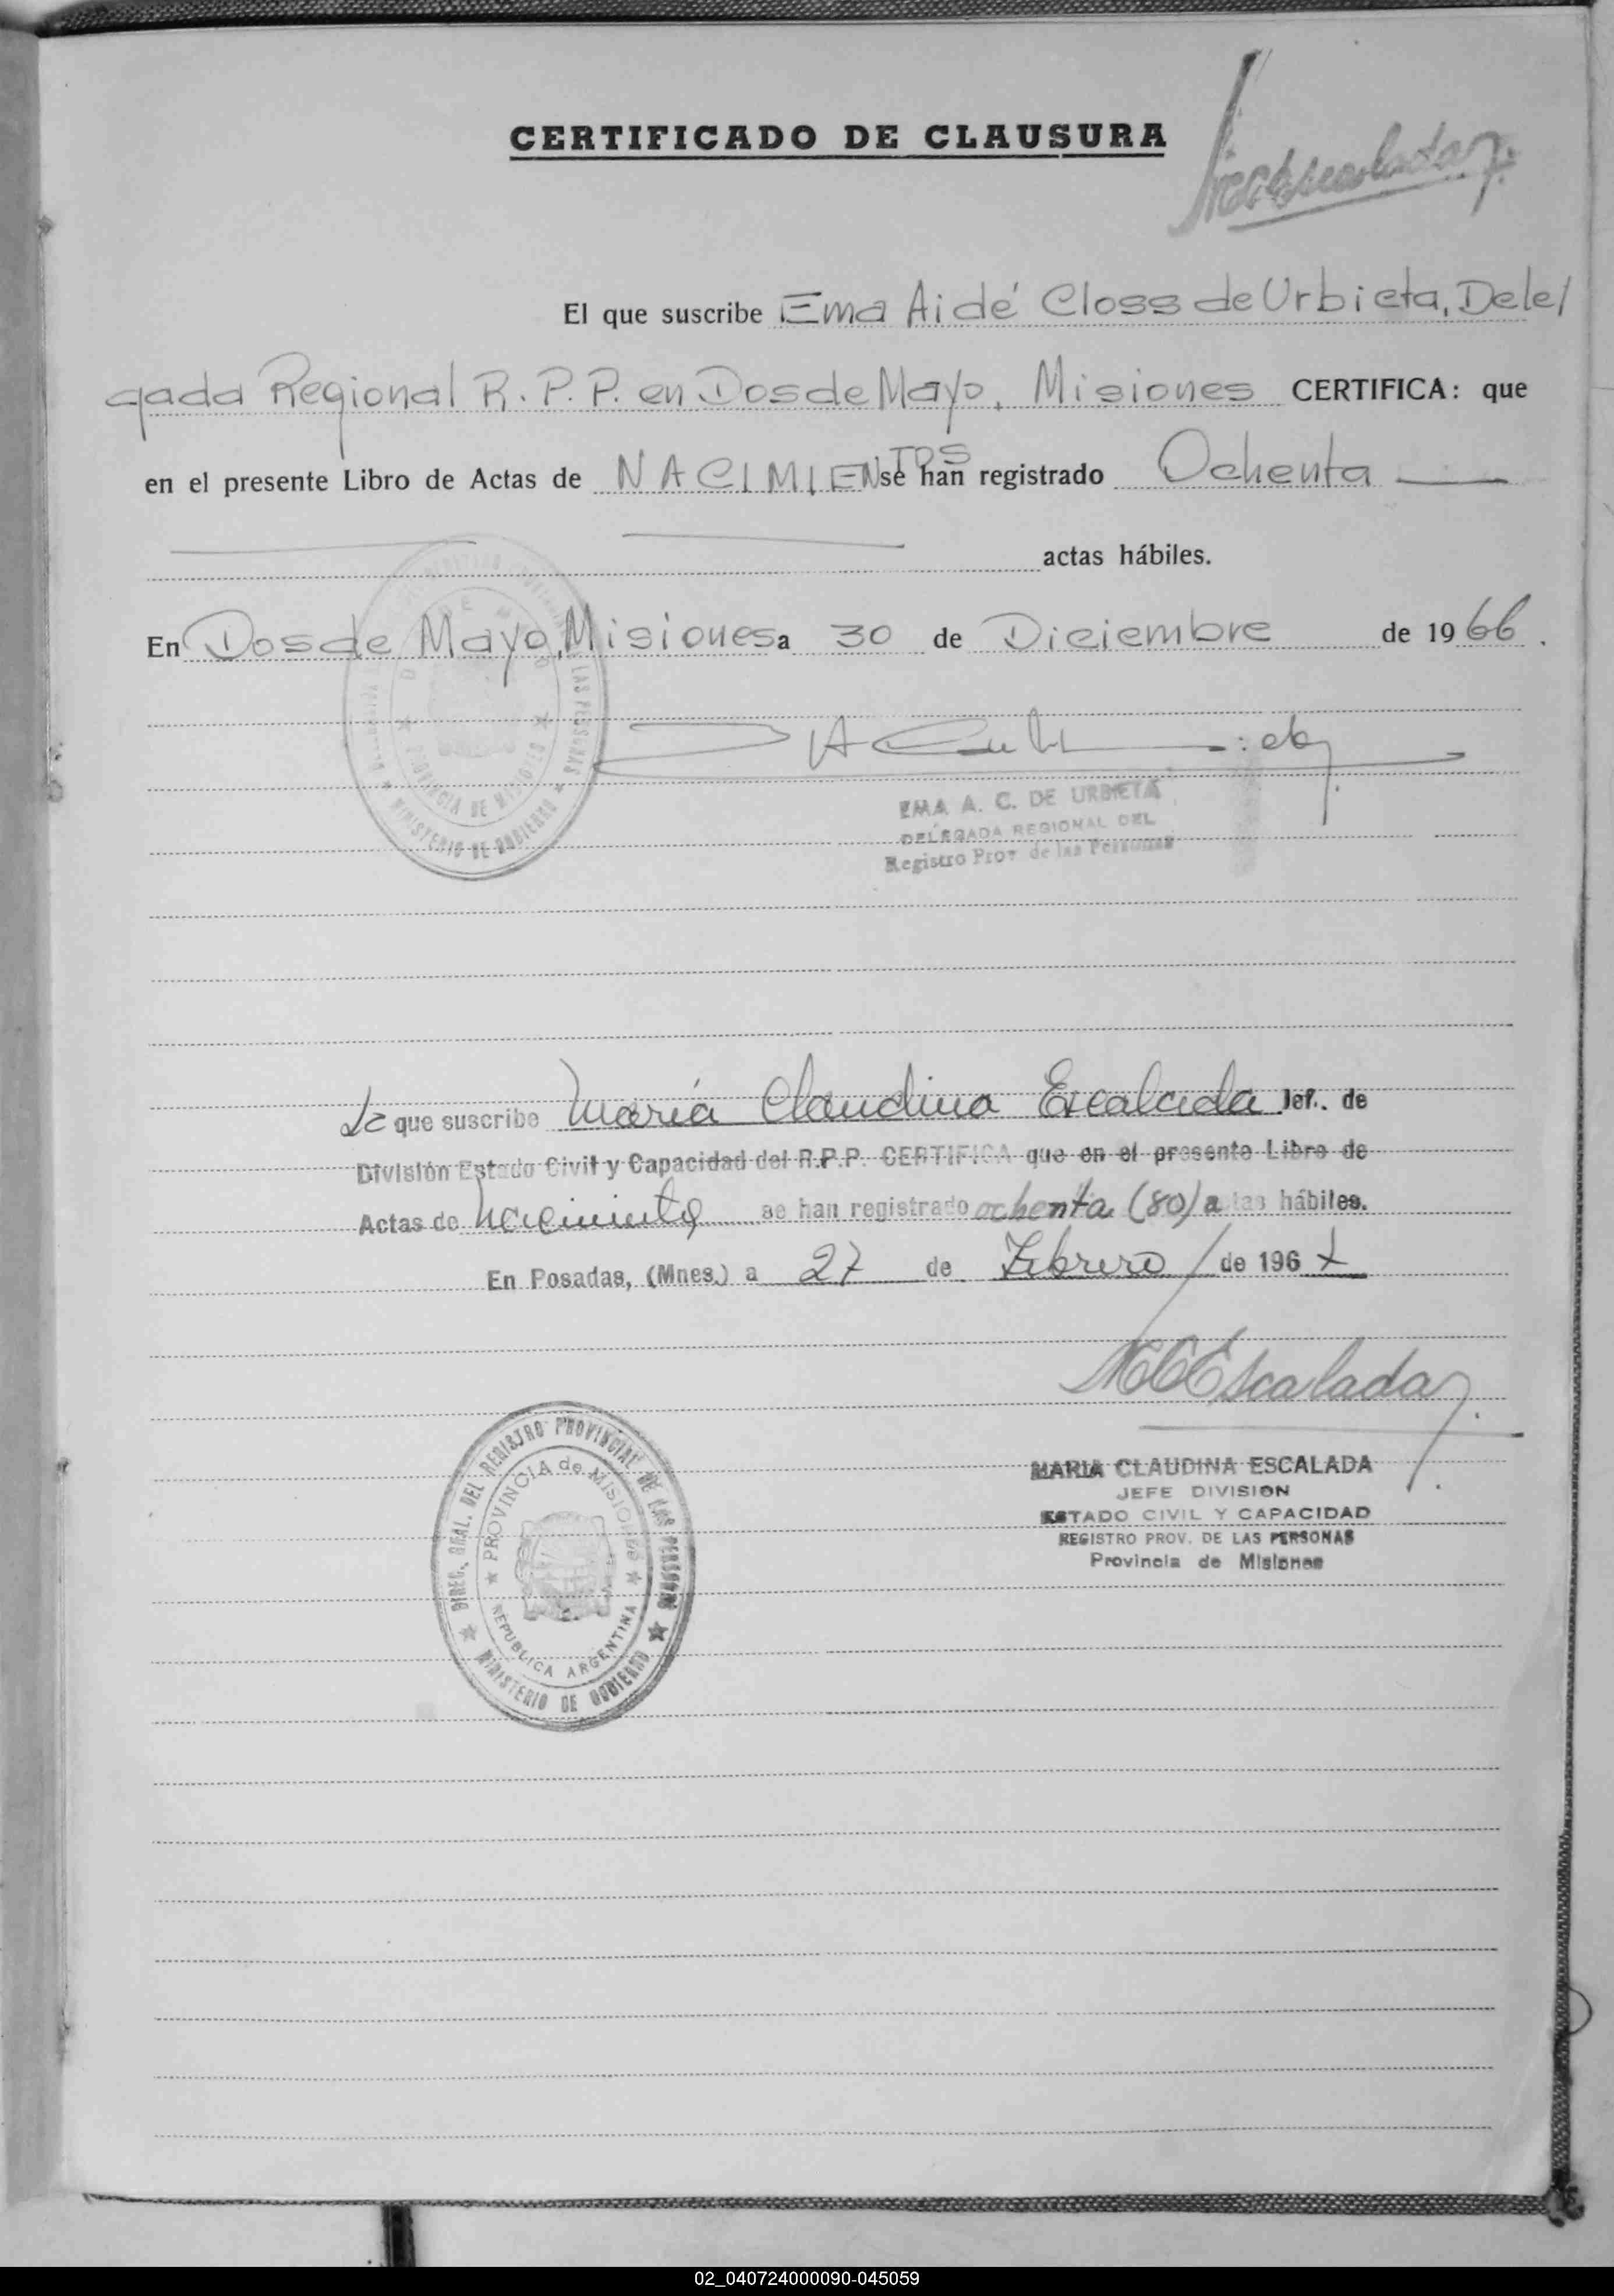 CERTIFICADO DE CLAUSURA
MCEscalada
El que suscribe Ema Aidé Closs de Urbieta, Dele/
gada Regional R.P.P. en Dos de Mayo, Misiones CERTIFICA: que
en el presente Libro de Actas de NACIMIENTOS se han registrado Ochenta
actas hábiles.
En Dos de Mayo, Misiones a 30 de Diciembre de 1966.
EMA A. C. DE URBIETA
DELEGADA REGIONAL DEL
Registro Prov de las Personas
DE LAS PERSONAS ★ MINISTERIO DE GOBIERNO ★
PROVINCIA DE MISIONES
La que suscribe María Claudina Escalada Jef. de
División Estado Civil y Capacidad del R.P.P. CERTIFICA que en el presente Libro de
Actas de Nacimientos se han registrado ochenta (80) a tas hábiles.
En Posadas, (Mnes.) a 27 de Febrero de 1967
MCEscalada
MARIA CLAUDINA ESCALADA
JEFE DIVISION
ESTADO CIVIL Y CAPACIDAD
REGISTRO PROV. DE LAS PERSONAS
Provincia de Misiones
DIREC. GRAL. DEL REGISTRO PROVINCIAL DE LAS PERSONAS ★ MINISTERIO DE GOBIERNO ★
★ PROVINCIA de MISIONES ★ REPUBLICA ARGENTINA
02_040724000090-045059